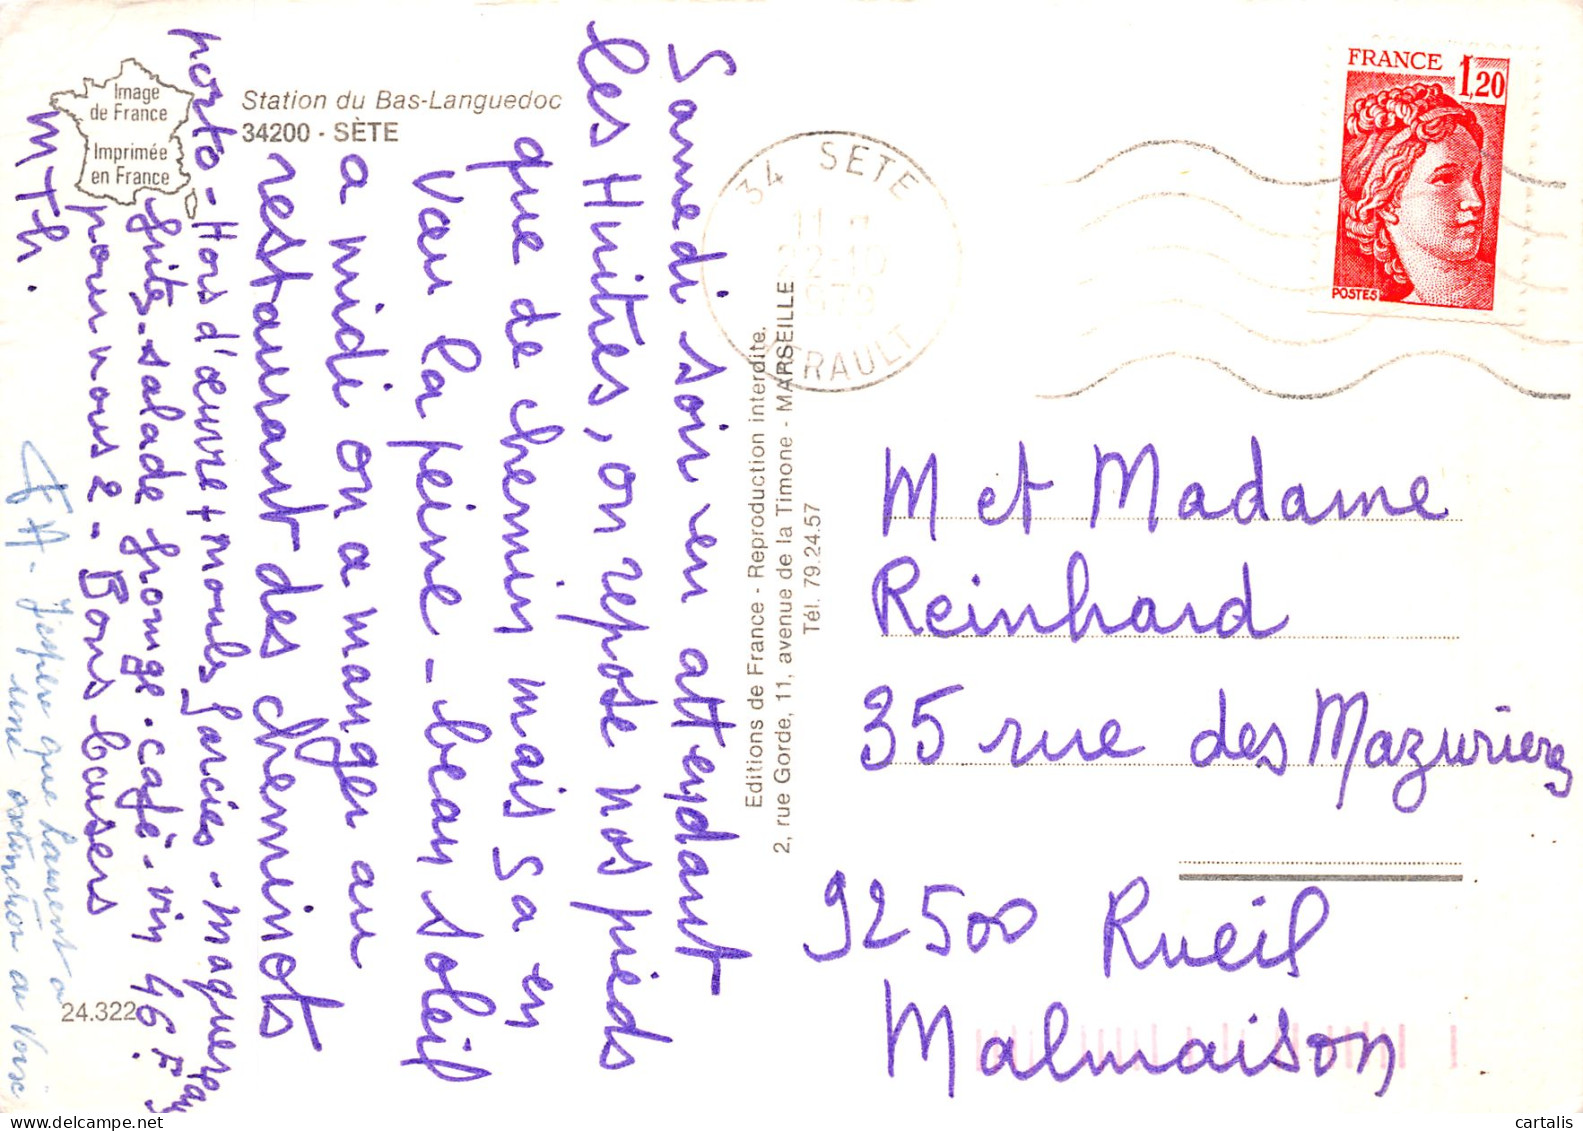 Image
de France
Imprimée
en France
Station du Bas-Languedoc
34200 - SÈTE
Samedi soir en attendant
les Huitres, on repose nos pieds
que de chemin mais ça en
Vau la peine - beau soleil
a midi on a manger au
restaurant des cheminots
porto - Hors d'œuvre + moules farcies - maquereau
frites - salade fromage - café - vin 46 F
pour nous 2 - Bons baisers
M Th.
J'espère que Laurent a
une
24.322
Editions de France - Reproduction interdite.
2, rue Gorde, 11, avenue de la Timone - MARSEILLE
Tél. 79.24.57
34 SETE
HERAULT
FRANCE
1,20
POSTES
M et Madame
Reinhard
35 rue des Mazurieres
92500 Rueil
Malmaison
www.delcampe.net
cartalis